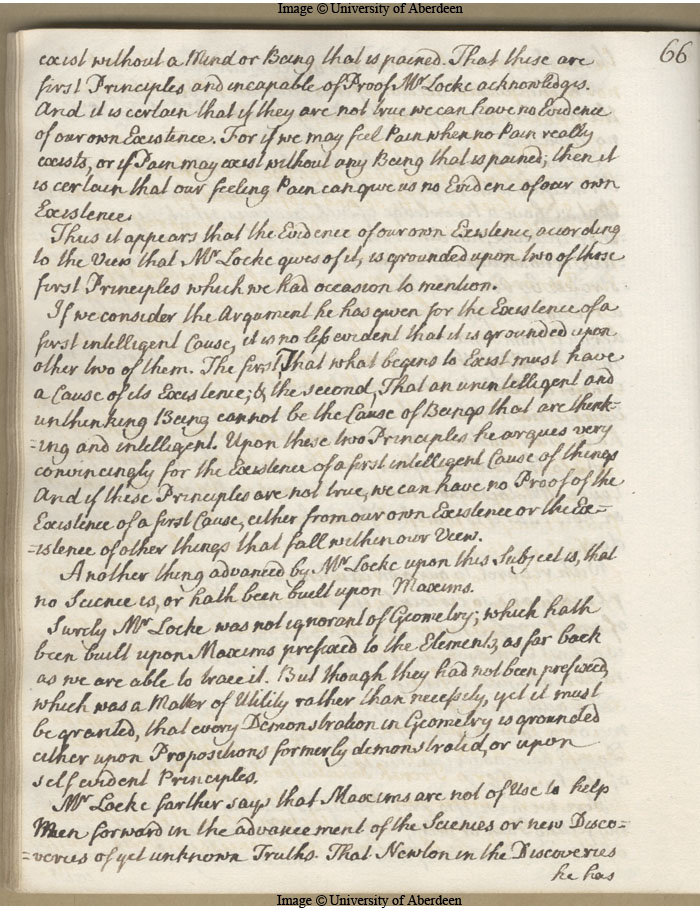 Image © University of Aberdeen
66
exist without a Mind or Being that is pained. That these are
first Principles and incapable of Proof Mr Locke acknowledges.
And it is certain that if they are not true we can have no Evidence
of our own Existence. For if we may feel Pain when no Pain really
exists, or if Pain may exist without any Being that is pained; then it
is certain that our feeling Pain can give us no Evidence of our own
Existence.
Thus it appears that the Evidence of our own Existence, according
to the View that Mr Locke gives of it, is grounded upon two of those
first Principles which we had occasion to mention.
If we consider the Argument he has given for the Existence of a
first intelligent Cause, it is no less evident that it is grounded upon
other two of them. The first, That what begins to Exist must have
a Cause of its Existence; & the second, That an unintelligent and
unthinking Being cannot be the Cause of Beings that are think-
=ing and intelligent. Upon these two Principles he argues very
convincingly for the Existence of a first intelligent Cause of things
And if these Principles are not true, we can have no Proof of the
Existence of a first Cause, either from our own Existence or the Ex=
=istence of other things that fall within our View.
Another thing advanced by Mr Locke upon this Subject is, that
no Science is, or hath been built upon Maxims.
Surely Mr Locke was not ignorant of Geometry; which hath
been built upon Maxims prefixed to the Elements, as far back
as we are able to trace it. But though they had not been prefixed,
which was a Matter of Utility rather than necessity, yet it must
be granted, that every Demonstration in Geometry is grounded
either upon Propositions formerly demonstrated, or upon
self evident Principles.
Mr Locke farther says that Maxims are not of Use to help
Men forward in the advancement of the Sciences or new Disco=
=veries of yet unknown Truths. That Newton in the Discoveries
he has
Image © University of Aberdeen